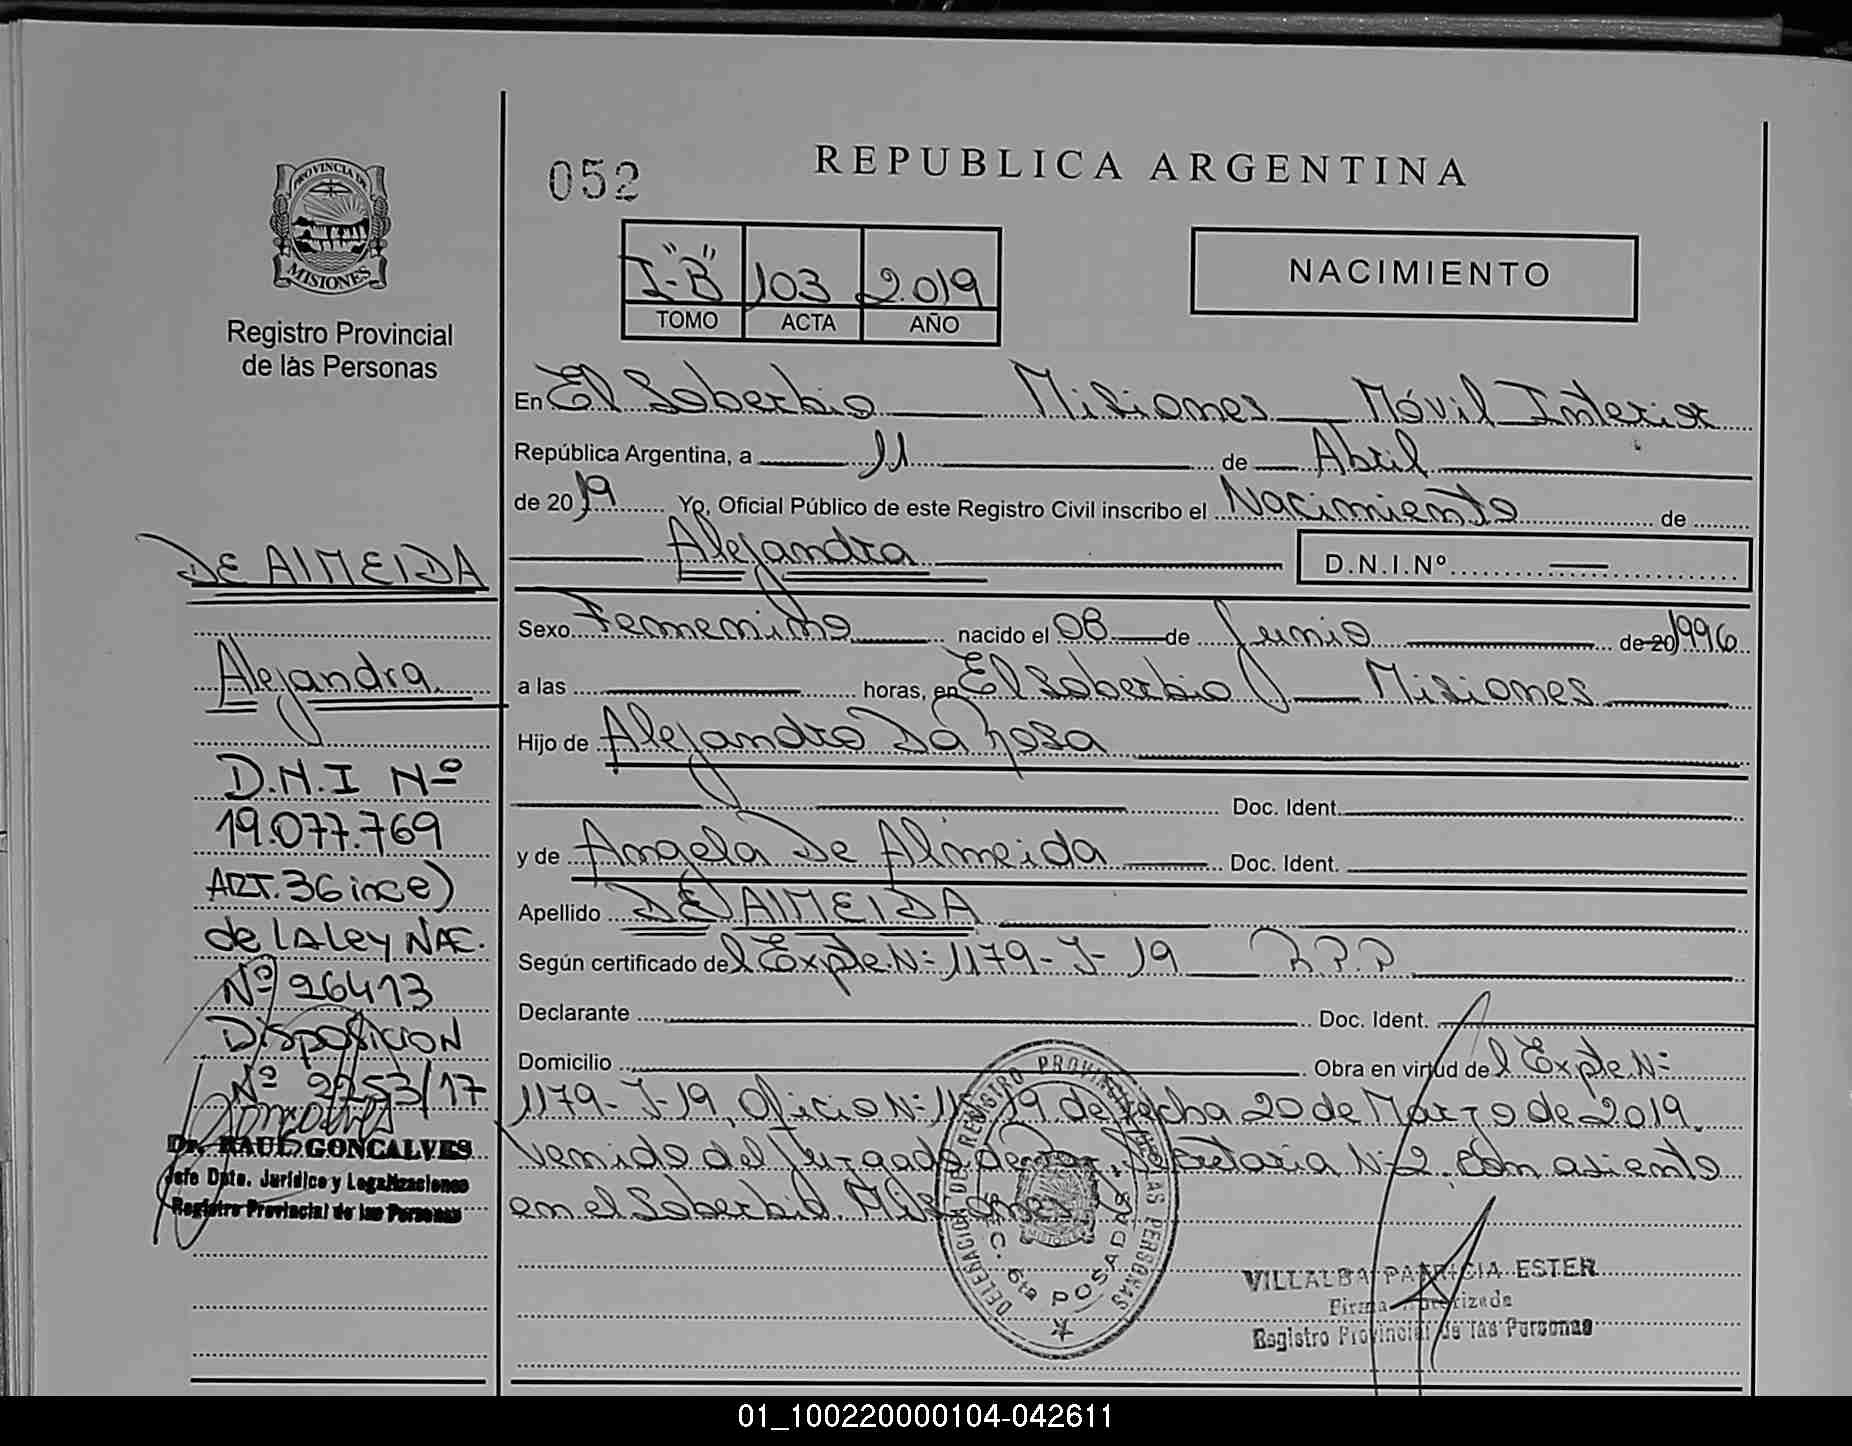 052
REPUBLICA ARGENTINA
PROVINCIA DE
MISIONES
Registro Provincial
de las Personas
I-"B" 103 2.019
TOMO ACTA AÑO
NACIMIENTO
En El Soberbio Misiones Móvil Interior
República Argentina, a 11 de Abril
de 2019 Yo, Oficial Público de este Registro Civil inscribo el Nacimiento de
Alejandra D.N.I.Nº
Sexo Femenino nacido el 08 de Junio de 20 1996
a las horas, en El Soberbio Misiones
Hijo de Alejandro Da Rosa
Doc. Ident.
y de Angela De Almeida Doc. Ident.
Apellido DE ALMEIDA
Según certificado del Expte.N: 1179-J-19 R.P.P
Declarante Doc. Ident.
Domicilio Obra en virtud del Expte.N:
1179-J-19, Oficio N: de fecha 20 de Marzo de 2.019.
Venido del Juzgado de Paz, Secretaria N:2. Con asiento
en el Soberbio Misiones
DE ALMEIDA
Alejandra
D.N.I Nº
19.077.769
ART. 36 inc e)
de LA Ley NAC.
Nº 26413
DISPOSICION
Nº 2253/17
Goncalves
Dr. RAUL GONCALVES
Jefe Dpto. Jurídico y Legalizaciones
Registro Provincial de las Personas
DELEGACION DEL REGISTRO PROVINCIAL DE LAS PERSONAS
SEC. 6ta POSADAS
VILLALBA PATRICIA ESTER
Firma Autorizada
Registro Provincial de las Personas
01_100220000104-042611